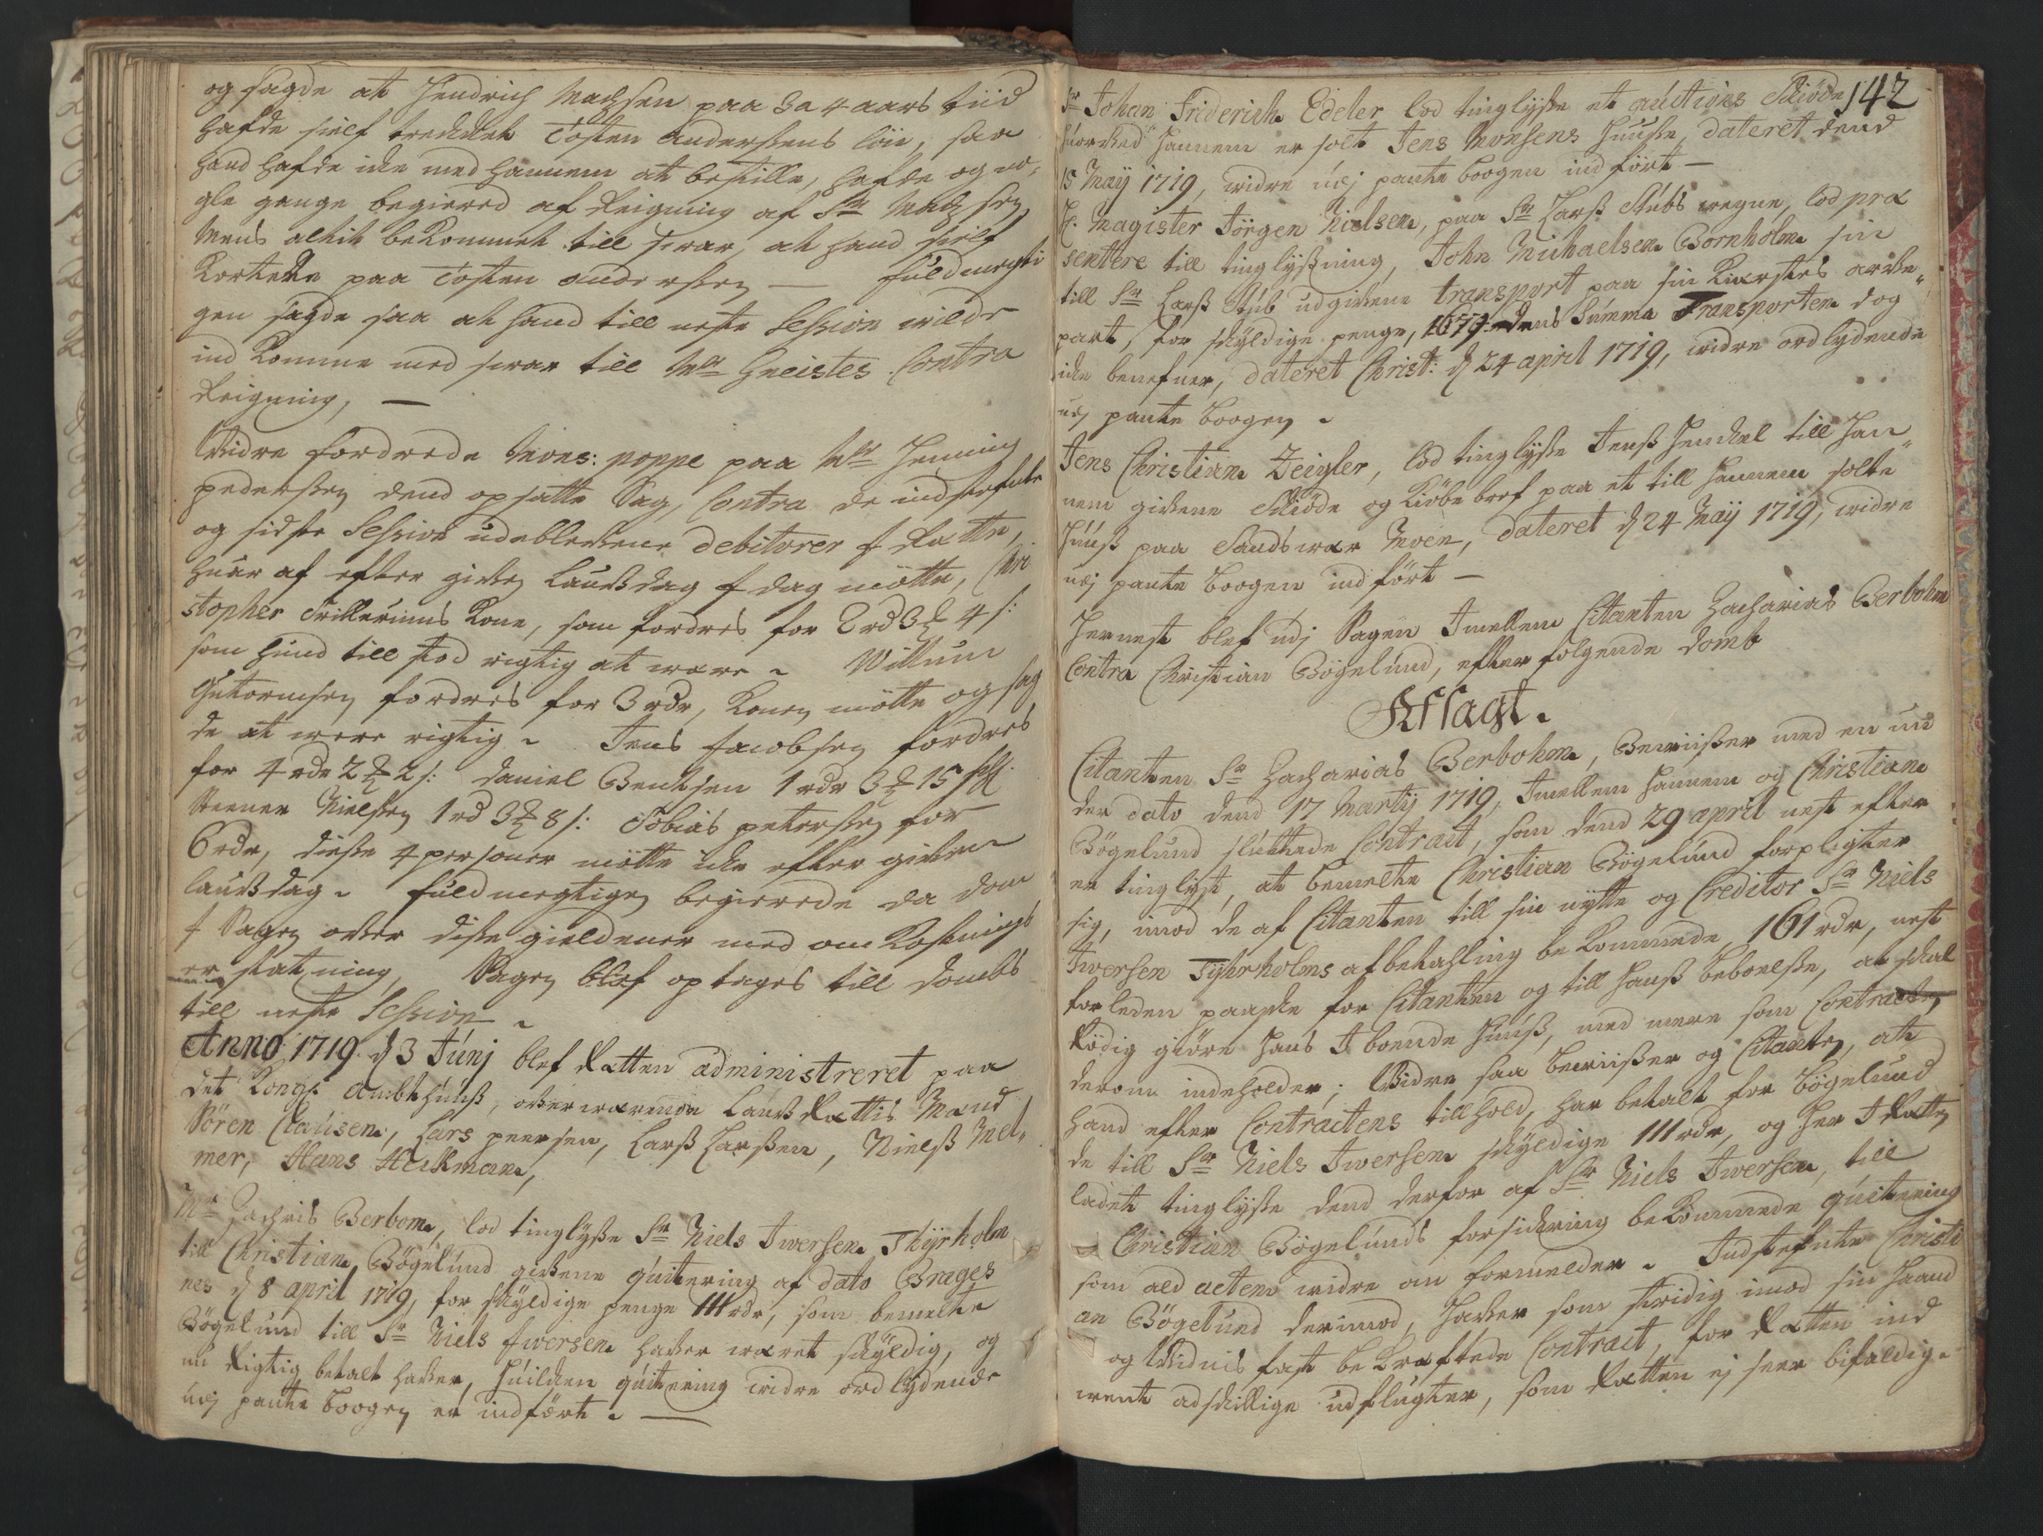 og sagde at Hendrich Madsen paa 3 a 4 aars tiid
hafde sielf trechket Tosten Anderssens løn, saa
hand hafde iche med hannem at bestille, hafde og no¬
gle gange begiered af Reigning af Sr Madsen
Mens altiit bekommet till svar, at hand sielf
kortede paa Tosten Anderssen — fuldmegti
gen sagde saa at hand till neste Session vilde
ind komme med svar till Mr Gneistes Contra
Reigning, —
Widre fordrede Mons: poppe paa Mr Henning
pederssen dend opsatte Sag, Contra de indstefnte
og sidste Session udeblefvene debitorer f Rætte,
huor af efter gifven Laugdag f dag møtte, Chri
stopher Trilleriuus Kone, som fordres for 2 rd 3 ₰ 4 s:
som hund till stod rigtig at være. Willum
Gutormsen fordres for 3 rdr, konen møtte og sag
de at were rigtig. Jens Jacobsen fordres
for 4 rdr 2 ₰ 2 s: Daniel Bentsen 1 rdr 3 ₰ 15 sk:
Steener Nielsen 1 rd 3 ₰ 8 s: Tobias peterssen for
6 rdr, diesse 4 personer møtte iche efter gifven
laugdag. fuldmegtigen begierede da dom
f Sagen ofver disse gieldener med om Kostnings
er statning, Sagen blef optages till dombs
till neste Session.
Anno 1719 d 3 Junj blef Retten administreret paa
det Kongl Ambthuuss, ofverværende Laug Rettis Mænd
Sören Clausen, Lars peersen, Larss Larssen, Nielss Mel¬
mer, Hans Heitmann,
Mr Zachris Berbom, lod tinglysse Sr Niels Iwersen Thyrholm
till Christian Bögelund gifvene quitering af dato Brages
nes d 8 april 1719, for skyldige penge 111 rdr, som bemelte
Bögelund till Sr Niels Iwersen hafver veret skyldig, og
nu Rigtig betalt hafver, huilchen quitering vidre ordlydende
udj pante boogen er indført. —
142
Sr Johan Friderich Edeler lod tinglysse et auctions Skiøde
huorved hannem er solt Jens Monsens Huusse, dateret dend
15 Maÿ 1719, vidre udj pante boogen indført —
H. Magister Jörgen Nielsen, paa Sr Larss Stubs vegne, lod præ
sentere till tinglyssning, John Michaelsen Bornholm sin
till Sr Larss Stub udgifvene transport paa sin kierstes arfve¬
part, for skyldige penge, 1679 dens Summa Transporten dog
iche benefner, dateret Christ: d 24 april 1719, vidre ordlydende
udj pante boogen.
Jens Christian Zeigler, lod tinglysse Jenss Henchel till Han¬
nem gifvene Skiøde og kiøbe bref paa et till hannem solte
Huuss paa Sandswær Moen, dateret d 24 Maÿ 1719, vidre
udj pante boogen indført —
Hernest blef udj Sagen Jmellem Citanten Zacharias Berbohm
Contra Christian Bögelund, efterfølgende domb
Afsagt.
Citanten Sr Zacharias Berbohm, Beviisser med en un
der dato dend 17 Martij 1719, Jmellem Hannem og Christian
Bögelund sluttede Contract, som dend 29 april nest efter
er tinglyst, at bemelte Christian Bögelund forpligter
sig, imod de af Citanten till sin nytte og Creditor Sr Niels
Iwersen Tyhrholms afbetahling bekommede 161 rdr, nest
forleden paaske for Citanten og till hanss beboelsse, at skal
Rödig giøre hans I boende Huuss, med mere som Contracten
derom indeholder; Widre saa beviisser og Citanten, at
hand efter Contractens tillhold, har betalt for Bögelund
de till Sr Niels Iwersen skyldige 111 rdr, og Her J Retten
ladet tinglysse dend derfor af Sr Niels Iwersen, till
Christian Bögelunds forsichring bekommede quitering
som ald acten vidre om formelder. Indstefnte Christi
an Bögelund derimod, Hafver som stridig imod sin Haand
og Widnis fast bekræftede Contract, for Retten ind
wendt adskillige udflugter, som Retten ej seer bifaldig.